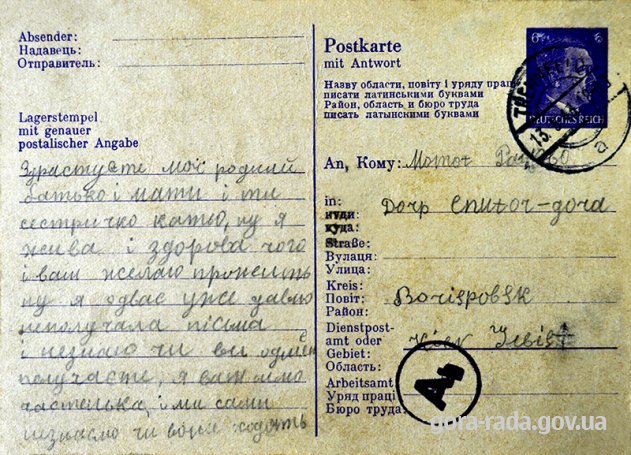 Absender:
Надавець:
Отправитель:
Lagerstempel
mit genauer
postalischer Angabe
Здраствуєте мої родний
батько і мати і ти
сестричко катю, ну я
жива і здорова чого
і вам желаю прожить
ну я одвас уже давно
неполучала пісьма
і незнаю чи ви одмене
получаєте, я вам
частенько, і ми сами
незнаємо чи вони ходять
Postkarte
mit Antwort
Назву области, повіту і уряду праці
писати латинськими буквами
Район, область и бюро труда
писать латынскими буквами
6
DEUTSCHES REICH
13.
a
An, Кому: Momot
in: Dorp Cnutor-gora
куди:
куда:
Straße:
Вулаця:
Улица:
Kreis:
Повіт: Borispovsk
Район:
Dienstpost-
amt oder Kiev
Gebiet:
Область:
Arbeitsamt
Уряд праці
Бюро труда:
gora-rada.gov.ua